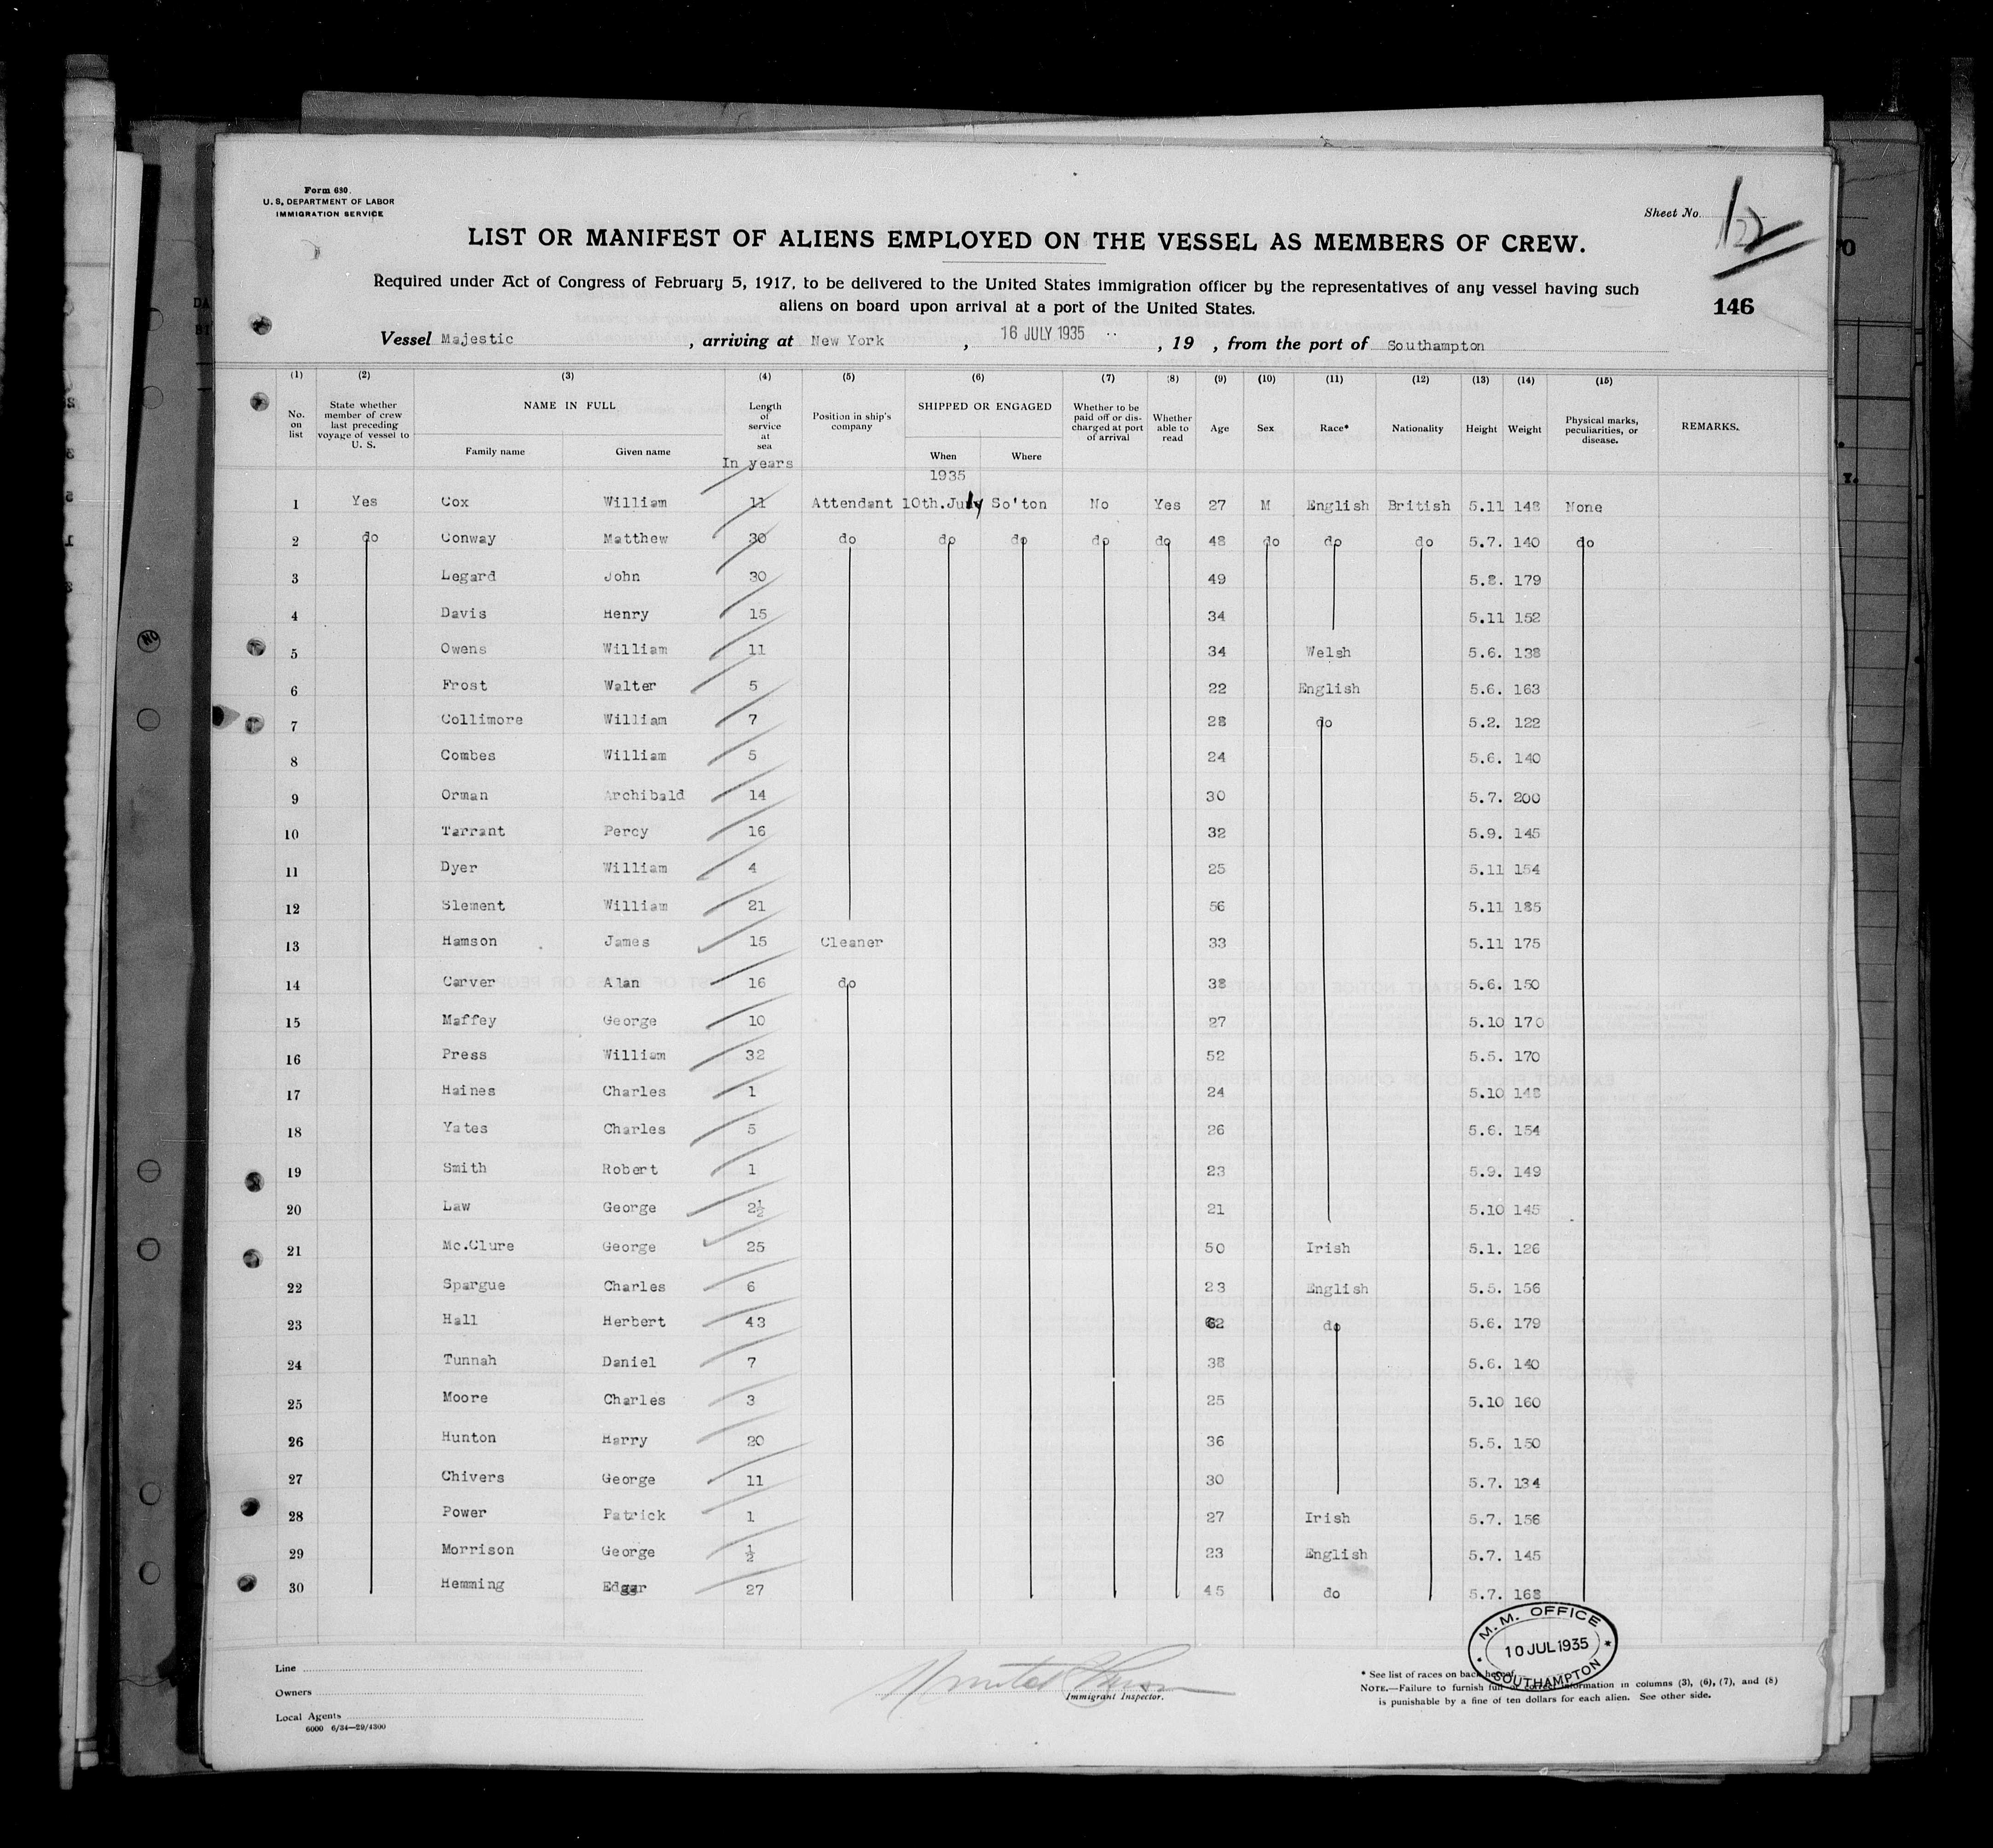 Form 680.
U. S. DEPARTMENT OF LABOR
IMMIGRATION SERVICE
Sheet No.
122
LIST OR MANIFEST OF ALIENS EMPLOYED ON THE VESSEL AS MEMBERS OF CREW.
Required under Act of Congress of February 5, 1917, to be delivered to the United States immigration officer by the representatives of any vessel having such
aliens on board upon arrival at a port of the United States.
146
Vessel Majestic , arriving at New York , 16 JULY 1935 , 19 , from the port of Southampton
(1) (2) (3) (4) (5) (6) (7) (8) (9) (10) (11) (12) (13) (14) (15)
No. on list State whether member of crew last preceding voyage of vessel to U. S. NAME IN FULL Family name Given name Length of service at sea Position in ship's company SHIPPED OR ENGAGED When Where Whether to be paid off or discharged at port of arrival Whether able to read Age Sex Race* Nationality Height Weight Physical marks, peculiarities, or disease. REMARKS.
In years 1935
1 Yes Cox William 11 Attendant 10th.July So'ton No Yes 27 M English British 5.11 148 None
2 do Conway Matthew 30 do do do do do 48 do do do 5.7. 140 do
3 Legard John 30 49 5.8. 179
4 Davis Henry 15 34 5.11 152
5 Owens William 11 34 Welsh 5.6. 138
6 Frost Walter 5 22 English 5.6. 163
7 Collimore William 7 28 do 5.2. 122
8 Combes William 5 24 5.6. 140
9 Orman Archibald 14 30 5.7. 200
10 Tarrant Percy 16 32 5.9. 145
11 Dyer William 4 25 5.11 154
12 Slement William 21 56 5.11 185
13 Hamson James 15 Cleaner 33 5.11 175
14 Carver Alan 16 do 38 5.6. 150
15 Maffey George 10 27 5.10 170
16 Press William 32 52 5.5. 170
17 Haines Charles 1 24 5.10 148
18 Yates Charles 5 26 5.6. 154
19 Smith Robert 1 23 5.9. 149
20 Law George 2½ 21 5.10 145
21 Mc.Clure George 25 50 Irish 5.1. 126
22 Spargue Charles 6 23 English 5.5. 156
23 Hall Herbert 43 62 do 5.6. 179
24 Tunnah Daniel 7 38 5.6. 140
25 Moore Charles 3 25 5.10 160
26 Hunton Harry 20 36 5.5. 150
27 Chivers George 11 30 5.7. 134
28 Power Patrick 1 27 Irish 5.7. 156
29 Morrison George ½ 23 English 5.7. 145
30 Hemming Edgar 27 45 do 5.7. 168
M. M. OFFICE
10 JUL 1935
SOUTHAMPTON
Line
Owners
Local Agents
6000 6/34—29/4300
Immigrant Inspector.
* See list of races on back hereof.
NOTE.—Failure to furnish full or correct information in columns (3), (6), (7), and (8)
is punishable by a fine of ten dollars for each alien. See other side.